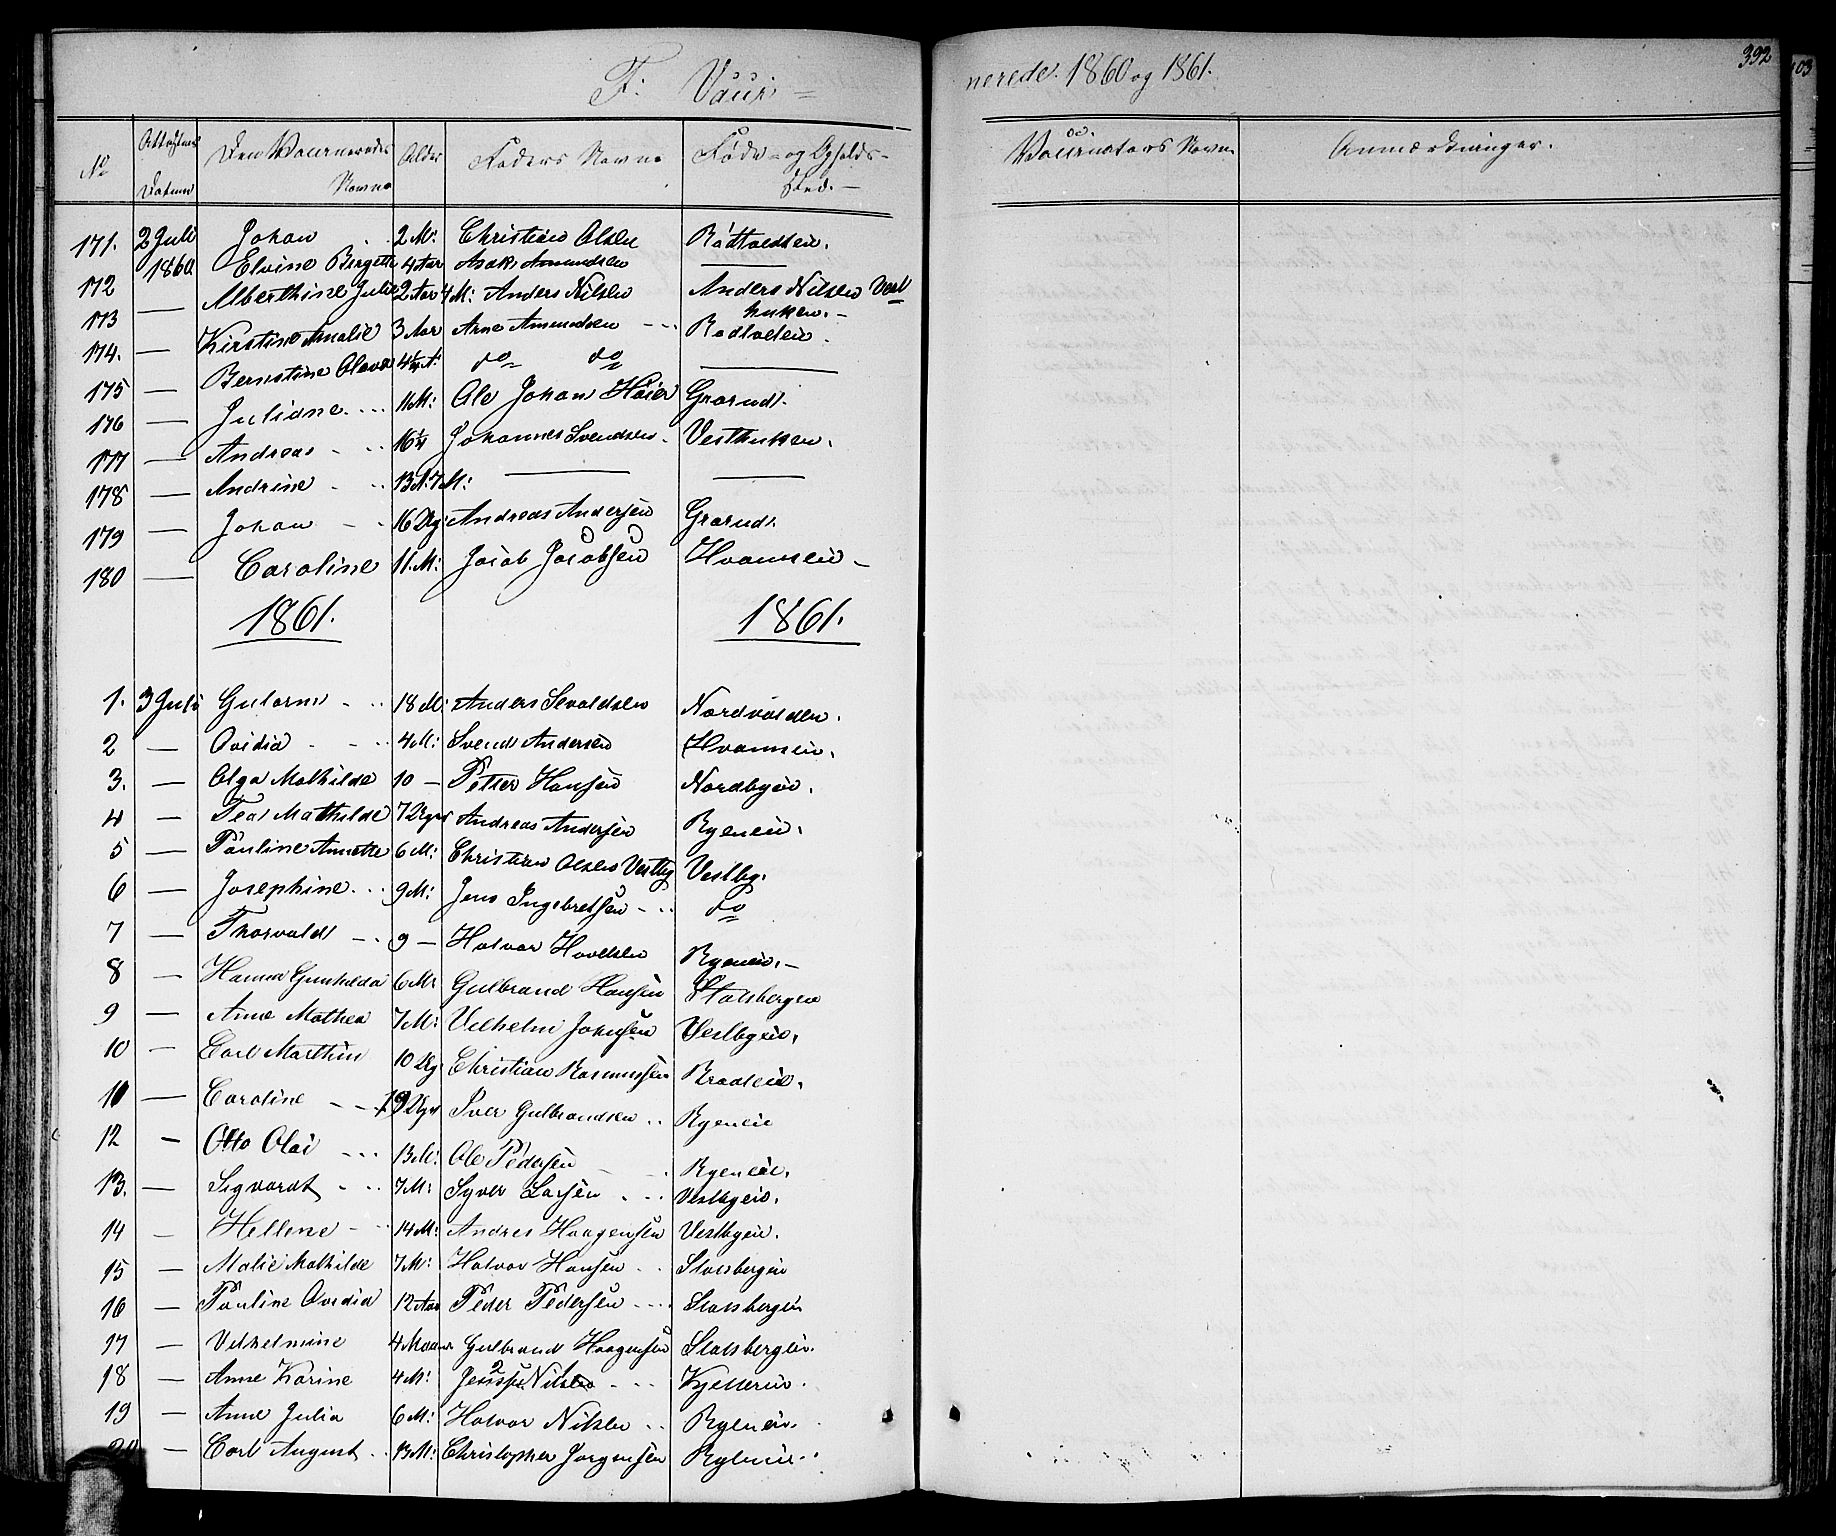 F. Vacci-
nerede. 1860 og 1861.
392
No
Attestens Datum
Den Vaccineredes Navne
Alder
Faders Navne
Føde- og Opholds-Sted.
Vaccinateurs Navn
Anmærkninger.
171. 2 Juli 1860 Johan 2 M: Christian Olsen Rödtvedteie.
172 Elvine Birgette 4 Aar Asak Amundsen —
173 — Alberthine Julie 2 Aar 4 M: Anders Nilsen Anders Nilsen Vesthuken.
174. — Kirstine Amalie 3 Aar Arne Amundsen Rödtveteie.
175 — Bernstine Olava 4½ A: do do —
176 — Juliane 11 M: Ole Johan Høier Grorud.
177 — Andreas 16¼ Johannes Svendsen Vesthuken.
178 — Andrine 13 A: 7 M: — —
179 — Johan 16 Ug: Andreas Andersen Grorud.
180 — Caroline 11. M: Jacob Jacobsen Hvameie
1861. 1861.
1. 3 Juli Gutorm 18 M: Anders Sevaldsen Nordvolden.
2 — Ovidia 4 M: Svend Andersen Hvameie.
3. — Olga Mathilde 10 — Petter Hansen Nordbyeie.
4 — Thea Mathilde 7 Uger Andreas Andersen Ryeneie.
5 — Pauline Annette 6 M: Christian Olsen Vestby Vestby.
6 — Josephine 9 M: Jens Ingebretsen do
7 — Thorvald 9 — Halvor Hovelsen Ryeneie.
8 — Hanna Gunhilda 6 M: Gulbrand Hansen Stalsbergeie
9 — Anne Mathea 7 M: Vilhelm Johnsen Vestbyeie.
10 — Carl Marthin 10 Ug. Christian Rasmussen Braateie.
11 — Caroline 19 Uger Iver Gulbrandsen Ryeneie
12 — Otto Olai 13 M: Ole Pedersen Ryeneie.
13. — Sigvardt 7 M: Syver Larsen Vestbyeie.
14 — Hellene 14 M: Andres Haagensen Vestbyeie.
15 — Malie Mathilde 7 M: Halvor Hansen Stalsbergeie
16 — Pauline Ovidia 12 Aar Peder Pedersen Stalsbergeie
17 — Vilhelmine 4 Maaner Gulbrand Haagensen Stalsbergeie.
18 — Anne Karine 4 M: Nilsen Kjellereie.
19 — Anne Julia 6 M: Halvor Nilsen Ryeneie.
20 — Carl August 13 M: Christopher Jørgensen Ryeneie.